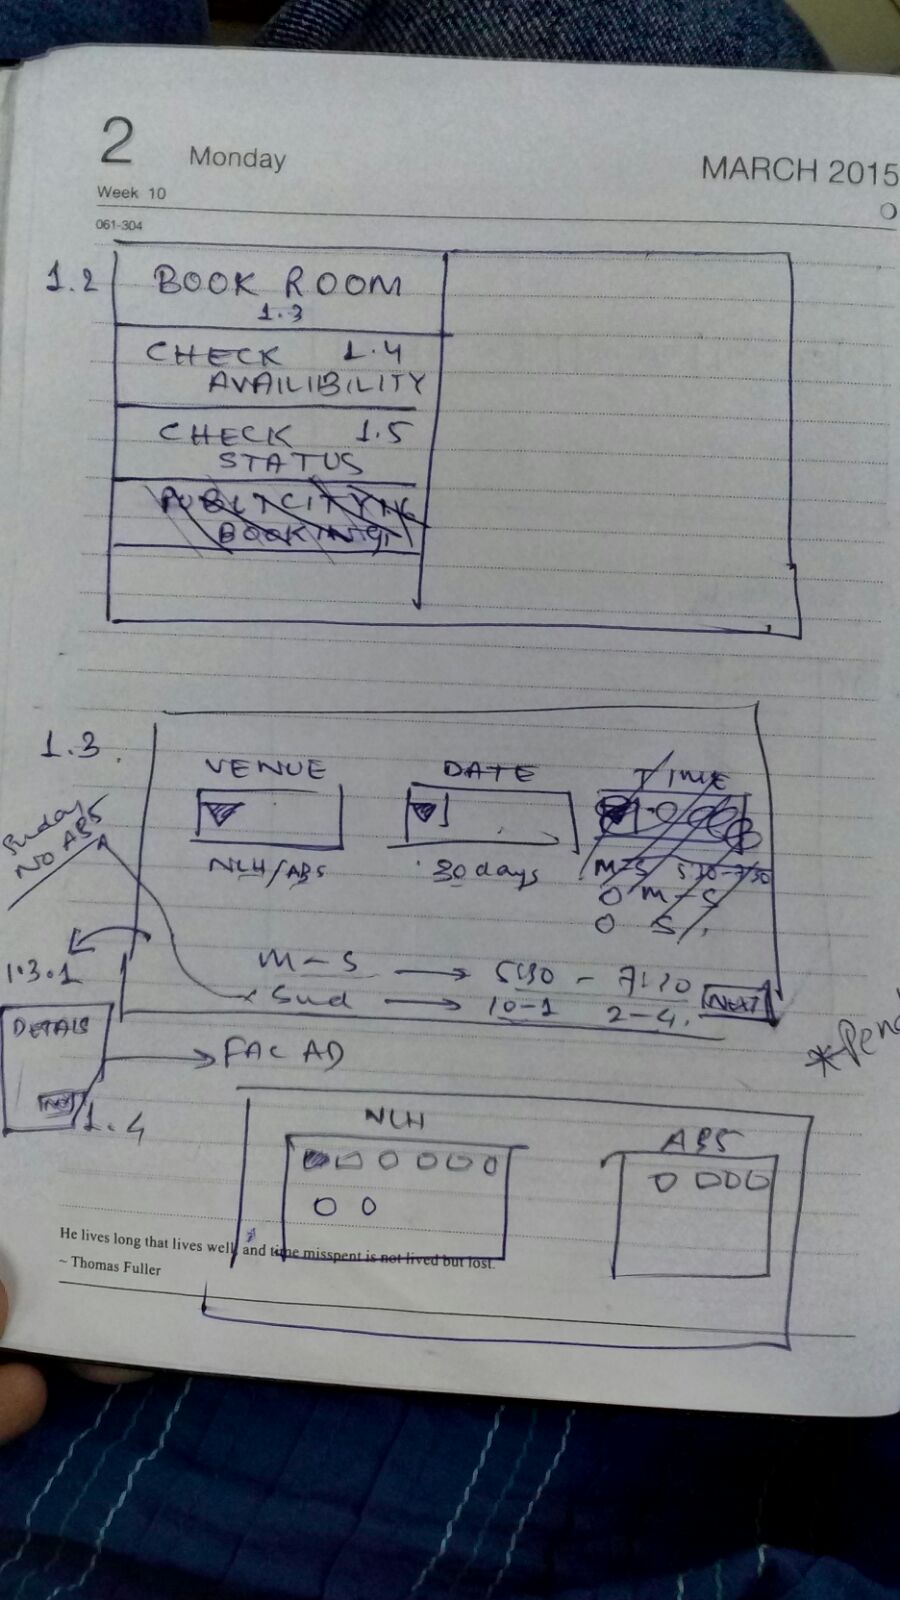 2 Monday MARCH 2015
Week 10
061-304
1.2 BOOK ROOM
1.3
CHECK 1.4
AVAILIBILITY
CHECK 1.5
STATUS
PUBLICITY
BOOKING
1.3
VENUE DATE TIME
NLH/ABS 30 days M-S 5:30-7:30
M-S
S
Sunday
NO ABS
M-S → 5:30 - 7:30
Sud → 10-1 2-4. NEXT
1.3.1
DETAILS
FAC AD
1.4
NLH ABS
He lives long that lives well, and time misspent is not lived but lost.
~ Thomas Fuller